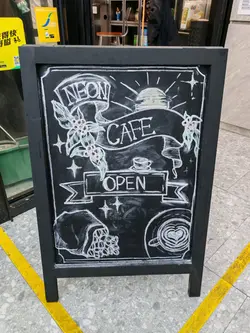 NEON
CAFE
OPEN